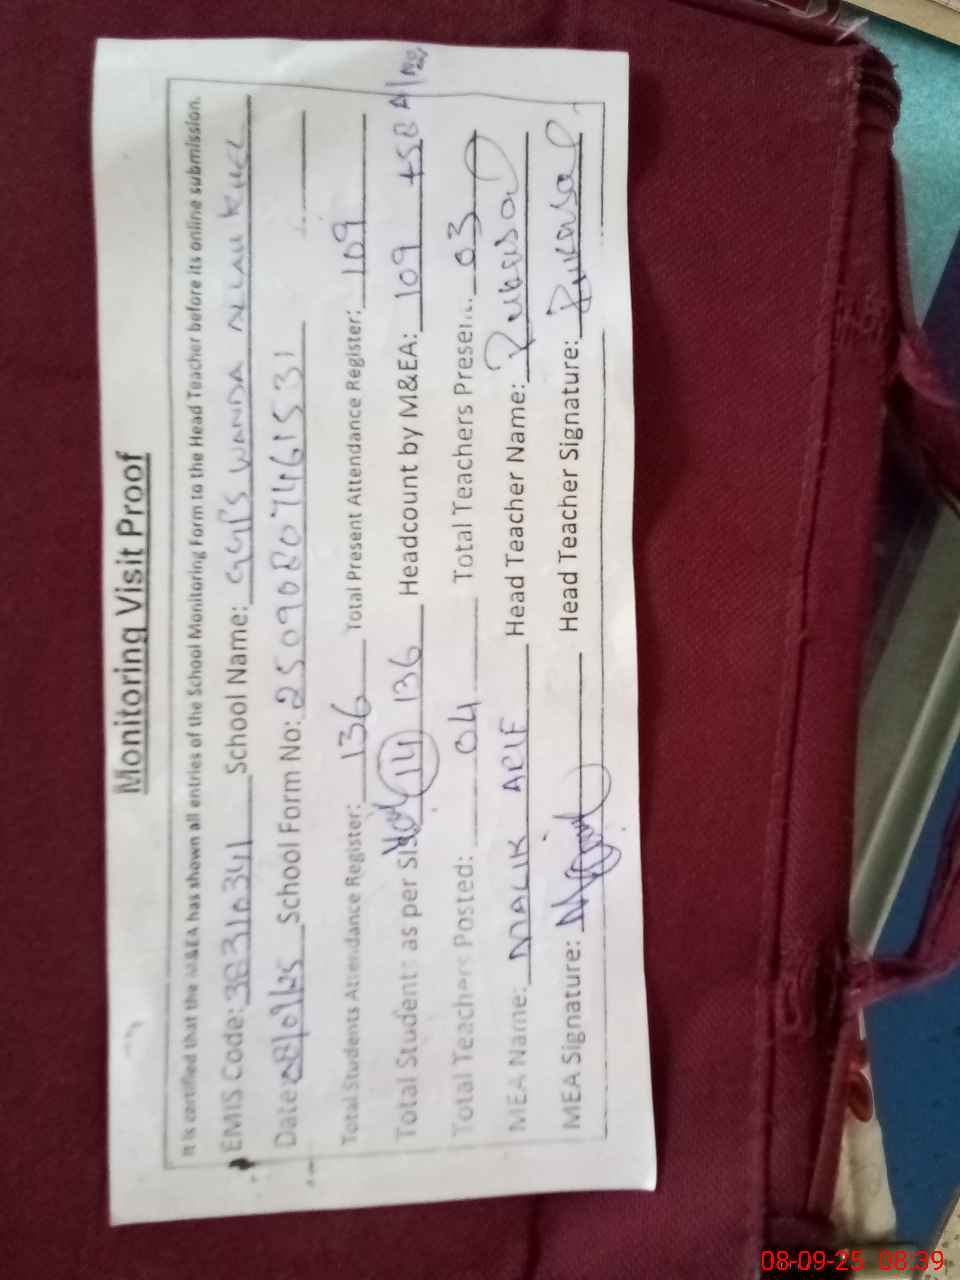 Monitoring Visit Proof
It is certified that the M&EA has shown all entries of the School Monitoring Form to the Head Teacher before its online submission.
EMIS Code: 38310341 School Name: GGPS WANDA
Date: 08/09/25 School Form No: 250908074615 31
Total Students Attendance Register: 136 Total Present Attendance Register: 109
Total Students as per SIS: 14 136 Headcount by M&EA: 109 +SB A/
Total Teachers Posted: 04 Total Teachers Present: 03
MEA Name: MALIK ARIF Head Teacher Name:
MEA Signature: Head Teacher Signature:
08-09-25 08:39